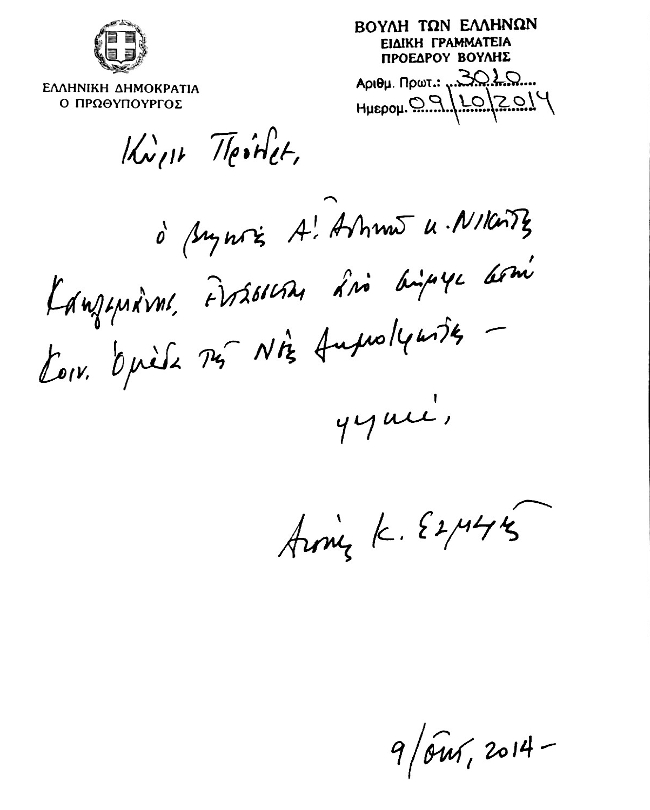 ΕΛΛΗΝΙΚΗ ΔΗΜΟΚΡΑΤΙΑ
Ο ΠΡΩΘΥΠΟΥΡΓΟΣ
ΒΟΥΛΗ ΤΩΝ ΕΛΛΗΝΩΝ
ΕΙΔΙΚΗ ΓΡΑΜΜΑΤΕΙΑ
ΠΡΟΕΔΡΟΥ ΒΟΥΛΗΣ
Αριθμ. Πρωτ.: 3020
Ημερομ. 09/10/2014
Κύριε Πρόεδρε,
ὁ βουλευτής Α! Ἀθηνῶν κ. Νικήτας
Κακλαμάνης, ἐντάσσεται ἀπό σήμερα στήν
Κοιν. Ὁμάδα τῆς Νέας Δημοκρατίας –
φιλικά,
Ἀντώνης Κ. Σαμαρᾶς
9/Ὀκτ, 2014 –